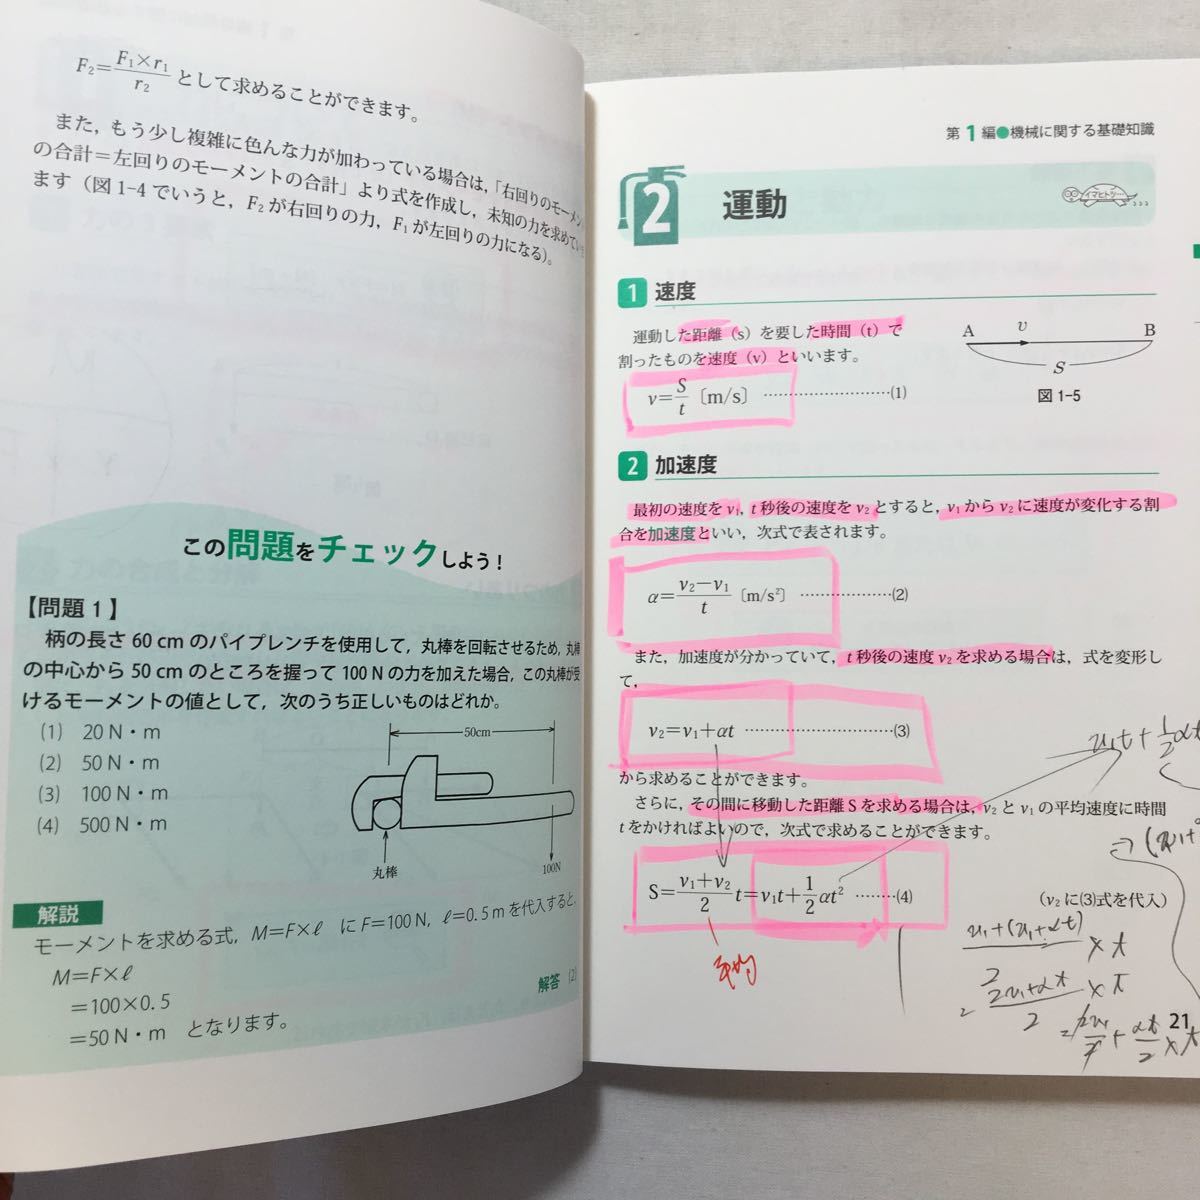 F₂=F₁×r₁/r₂として求めることができます。
また，もう少し複雑に色んな力が加わっている場合は，「右回りのモーメン
の合計＝左回りのモーメントの合計」より式を作成し，未知の力を求めてい
ます（図1-4でいうと，F₂が右回りの力，F₁が左回りの力になる）。
この問題をチェックしよう！
【問題1】
柄の長さ60cmのパイプレンチを使用して，丸棒を回転させるため，丸棒
の中心から50cmのところを握って100Nの力を加えた場合，この丸棒が受
けるモーメントの値として，次のうち正しいものはどれか。
(1) 20N・m
(2) 50N・m
(3) 100N・m
(4) 500N・m
50cm
丸棒
100N
解説
モーメントを求める式，M=F×ℓ に F=100N，ℓ=0.5mを代入すると，
M=F×ℓ
=100×0.5
=50N・m となります。
解答 (2)
第1編●機械に関する基礎知識
2 運動
イマヒトツ…
1 速度
運動した距離（s）を要した時間（t）で
割ったものを速度（v）といいます。
v=S/t〔m/s〕 ……………………(1)
A v B
S
図1-5
2 加速度
最初の速度をv₁，t秒後の速度をv₂とすると，v₁からv₂に速度が変化する割
合を加速度といい，次式で表されます。
α=(v₂−v₁)/t〔m/s²〕 ………………(2)
また，加速度が分かっていて，t秒後の速度v₂を求める場合は，式を変形し
て，
v₂=v₁+αt ……………………………(3)
から求めることができます。
さらに，その間に移動した距離Sを求める場合は，v₂とv₁の平均速度に時間
tをかければよいので，次式で求めることができます。
S=(v₁+v₂)/2 t=v₁t+1/2 αt² ………(4)
(v₂に(3)式を代入)
平均
v₁t+1/2 αt
v₁+(v₁+αt)/2 × t
= 2v₁+αt/2 × t
= 2v₁/2 + αt/2 × t
21